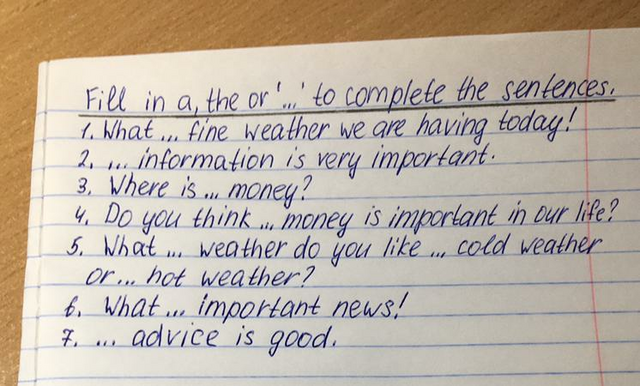 Fill in a, the or '...' to complete the sentences.
1. What ... fine weather we are having today!
2. ... information is very important.
3. Where is ... money?
4. Do you think ... money is important in our life?
5. What ... weather do you like ... cold weather
or ... hot weather?
6. What ... important news!
7. ... advice is good.